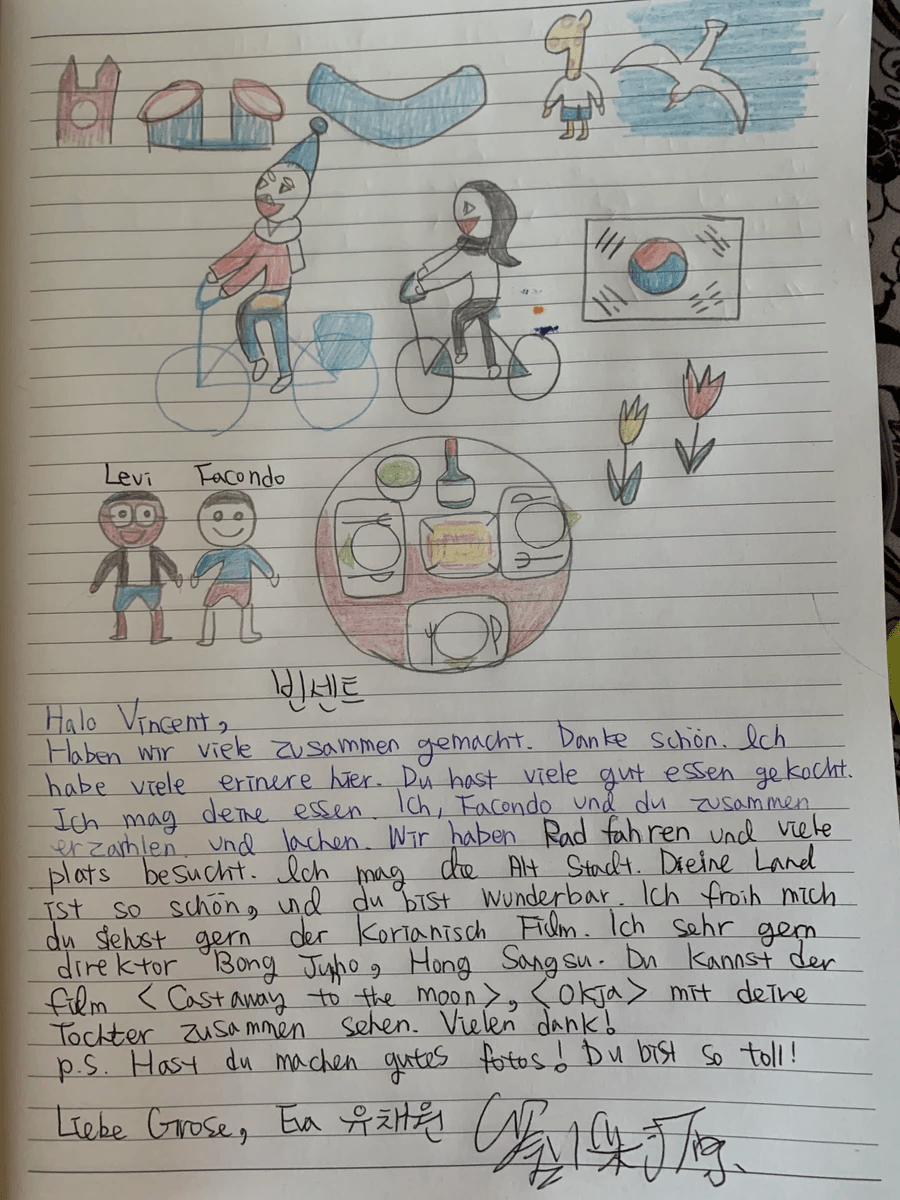 Levi Facondo
빈센트
Halo Vincent,
Haben wir viele zusammen gemacht. Danke schön. Ich
habe viele erinere hier. Du hast viele gut essen gekocht.
Ich mag deine essen. Ich, Facondo und du zusammen
erzahlen und lachen. Wir haben Rad fahren und viele
plats besucht. Ich mag die Alt Stadt. Dieine Land
ist so schön, und du bist wunderbar. Ich froih mich
du siehst gern der Korianisch Film. Ich sehr gern
direktor Bong Junho, Hong Sangsu. Du kannst der
film <Castaway to the moon>, <Okja> mit deine
Tochter zusammen sehen. Vielen dank!
p.s. Hast du machen gutes fotos! Du bist so toll!
Liebe Grose, Eva 유채원